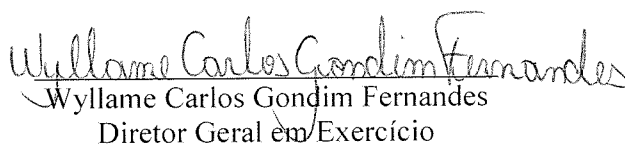 Wyllame Carlos Gondim Fernandes
Wyllame Carlos Gondim Fernandes
Diretor Geral em Exercício